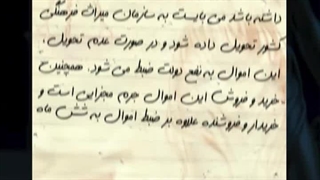 داشته باشد می بایست به سازمان میراث فرهنگی
کشور تحویل داده شود و در صورت عدم تحویل،
این اموال به نفع دولت ضبط می شود. همچنین
خرید و فروش این اموال جرم مجزایی است و
خریدار و فروشنده علاوه بر ضبط اموال به شش ماه